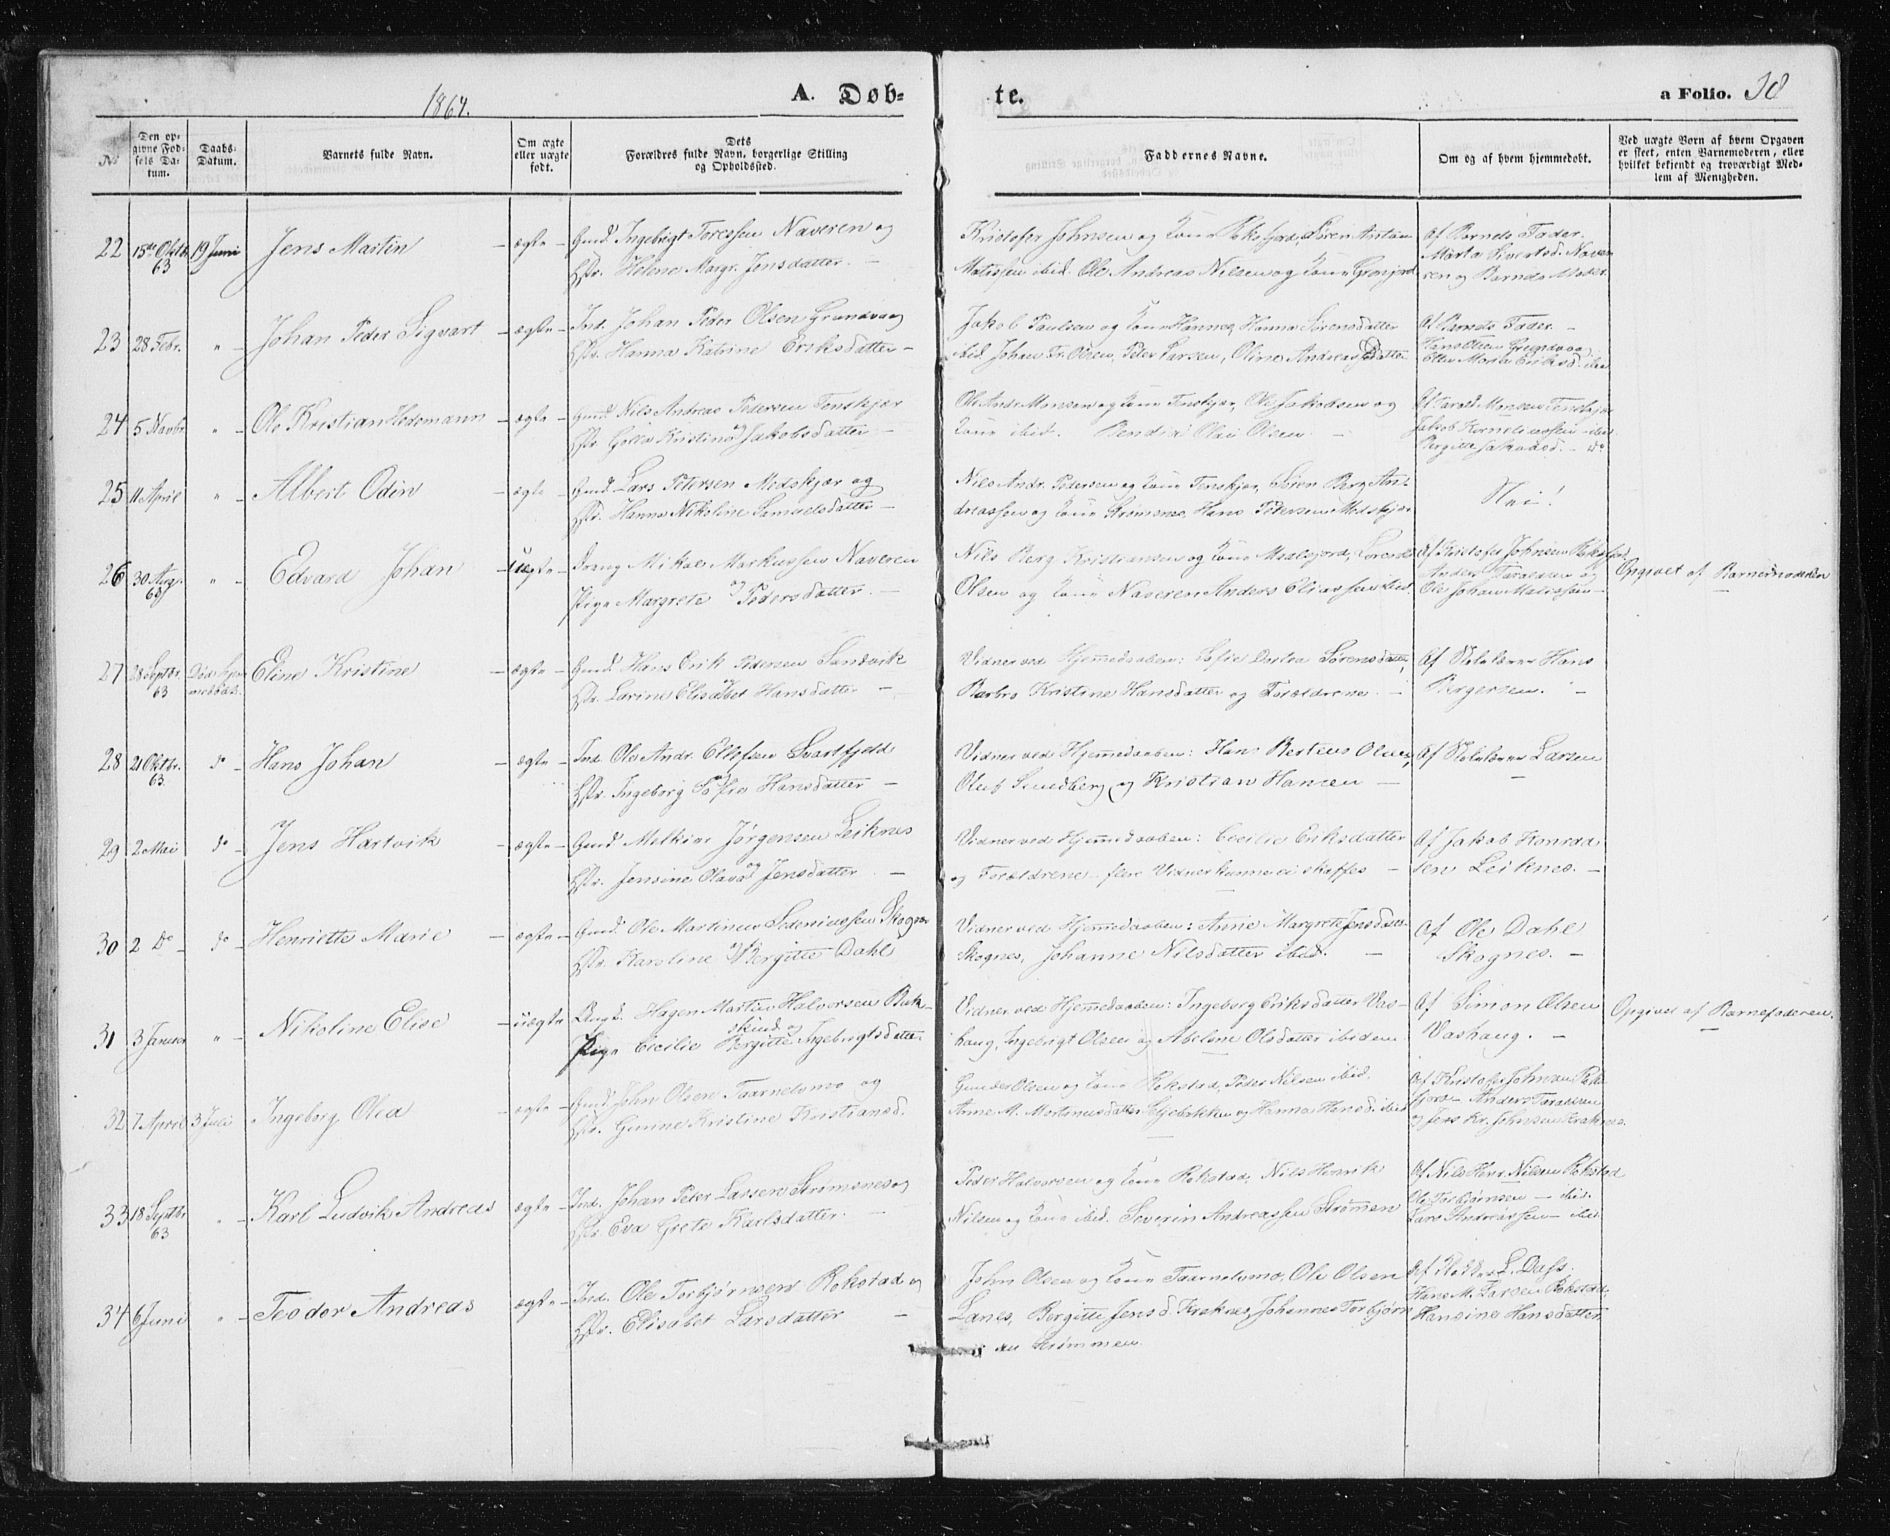 1864.
A. Døb-
te.
a Folio. 38
No
Den opgivne Fødsels Datum.
Daabs-Datum.
Barnets fulde Navn.
Om ægte eller uægte født.
Dets Forældres fulde Navn, borgerlige Stilling og Opholdssted.
Faddernes Navne.
Om og af hvem hjemmedøbt.
Ved uægte Børn af hvem Opgaven er skeet, enten Barnemoderen, eller hvilket bekjendt og troværdigt Medlem af Menigheden.
22 15de Oktbr. 63 19 Juni Jens Martin - ægte -
Gmd. Ingebrigt Toressen Naveren og
Hstr. Helene Margr. Jensdatter. -
Kristofer Johnsen og Kone Roksfjord, Søren Anton
Matissen ibid. Ole Andreas Nilsen og Kone Grønjord
Af Barnets Fader.
Marta Sivertsd. Nave-
ren og Barnets Moder.
23 28 Febr. " - Johan Peder Sigvart - ægte -
Ind. Johan Peder Olsen Grundvaag
Hstr. Hanna Katrine Eriksdatter -
Jakob Paulsen og Kone Hannes, Hanna Sørensdatter
ibid. Johan Fr. Olsen, Peter Larsen, Oline Andreasdatter
Af Barnets Fader. -
Hans Olsen Grundvaag
Ellen Maria Eriksd. ibid
24 5 Novbr. " - Ole Kristian Hedemann - ægte -
Gmd. Nils Andreas Pedersen Tenskjær
Hstr. Golla Kristine Jakobsdatter -
Ole Andr. Monsen og Kone Tenskjær, Ole Jakobsen og
Kone ibid. Bendix Olai Olsen. -
Af Tarald Monsen Tenskjær
Jakob Korneliussen - ibid
Bergitte Jakobsd. - do
25 11 April " - Albert Odin - ægte -
Gmd. Lars Petersen Medskjær og
Hstr. Hanna Nikoline Samuelsdatter -
Nils Andr. Pedersen og Kone Tenskjær, Søren Berg An-
dreassen og Kone Strømsnes, Hans Petersen Medskjær
Nei!
26 30 Aug. 63 " - Edvard Johan - uægte -
Dreng Mikal Markussen Naveren
Pige Margrete Pedersdatter. -
Nils Berg Kristiansen og Kone Maalsjord, Lorents
Olsen og Kone Naveren Anders Eliassen ibid.
Af Kristofer Johnsen Roksfjord
Anders Taraldsen og
Ole Johan Matiassen -
Opgivet af Barnemoderen
27 28 Septbr. 63 Død Hjem-
medøbt. Eline Kristine - ægte -
Gmd. Hans Erik Pedersen Sandvik
Hstr. Larine Elisabet Hansdatter -
Vidner ved Hjemmedaaben: Sofie Dortea Sørensdatter,
Barbro Kristine Hansdatter og Forældrene. -
Af Skolelærer Hans
Bergersen. -
28 21 Oktbr. 63 do - Hans Johan - ægte -
Ind. Ole Andr. Ellefsen Svartfjeld
Hstr. Ingeborg Sofia Hansdatter -
Vidner ved Hjemmedaaben: Hans Berteus Olsen,
Oluf Sundberg og Kristian Hansen -
Af Skolelærer Larsen
29 2 Mai do - Jens Hartvik - ægte -
Gmd. Melkior Jørgensen Leiknes
og
Hstr. Jensine Olava Jensdatter. -
Vidner ved Hjemmedaaben: Cecilie Eriksdatter
og Forældrene - flere Vidner kunne ei skaffes -
Af Jakob Konrad-
sen Leiknes. -
30 2 Do - do - Henriette Marie - ægte -
Gmd. Ole Martinus Sederiussen Skognes
Hstr. Karoline Bergitte Dahl
Vidner ved Hjemmedaaben: Anne Margrete Jensdatter
Skognes, Johanne Nilsdatter ibid. -
Af Ole Dahl
Skognes. -
31 3 Januar " - Nikoline Elise - uægte
Ungk. Hagen Martin Halvorsen Bak-
skind og
Pige Cecilie Bergitte Ingebrigtsdatter
Vidner ved Hjemmedaaben: Ingeborg Eriksdatter Vas-
haug, Ingebrigt Olsen og Abelone Olsdatter ibidem
Af Simon Olsen
Vashaug. -
Opgivet af Barnefaderen.
32 7 April 3 Juli Ingeborg Olea - ægte -
Gmd. John Olsen Taarnelvmo og
Hstr. Gunine Kristine Kristiansd.
Gunder Olsen og Kone Rokstad, Peder Nilsen ibid.
Anne M. Mortensdatter Seljebakken og Hanna Hansd. ibid
Af Kristofer Johnsen Roks-
fjord Anders Taraldsen
og Jens Kr. Johnsen Kraknes.
33 18 Septbr. 63 " - Karl Ludvik Andreas ægte -
Ind. Johan Peter Larsen Strømsnes og
Hstr. Eva Grete Karlsdatter. -
Peder Halvorsen og Kone Rokstad, Nils Henrik
Nilsen og Kone ibid. Severin Andreassen Strømen
Af Nils Henr. Nilsen Rokstad
Ole Torbjørnsen - ibid.
Lars Andreassen - ibid
34 6 Juni " - Teodor Andreas ægte -
Ind. Ole Torbjørnsen Rokstad og
Hstr. Elisabet Larsdatter -
John Olsen og Kone Taarnelvmo, Ole Olsen
Lanes, Bergitte Jensd. Kraknes, Johannes Torbjørn-
sen Strømmen.
L. Dass.
Hans M. Larsen Rokstad,
Hansine Hansdatter